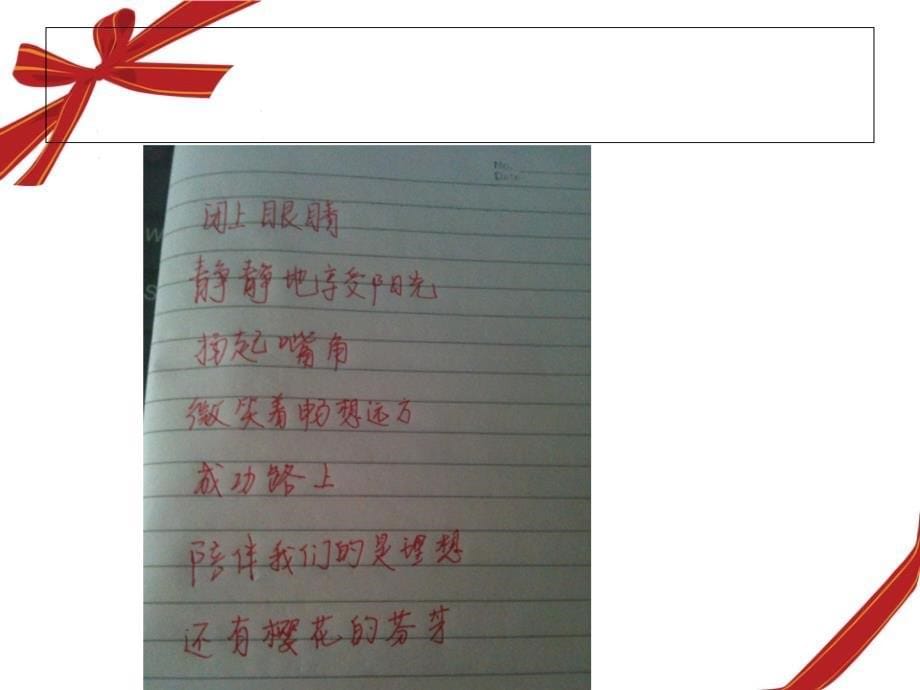 No.
Date
闭上眼睛
静静地享受阳光
扬起嘴角
微笑着畅想远方
成功路上
陪伴我们的是理想
还有樱花的芬芳